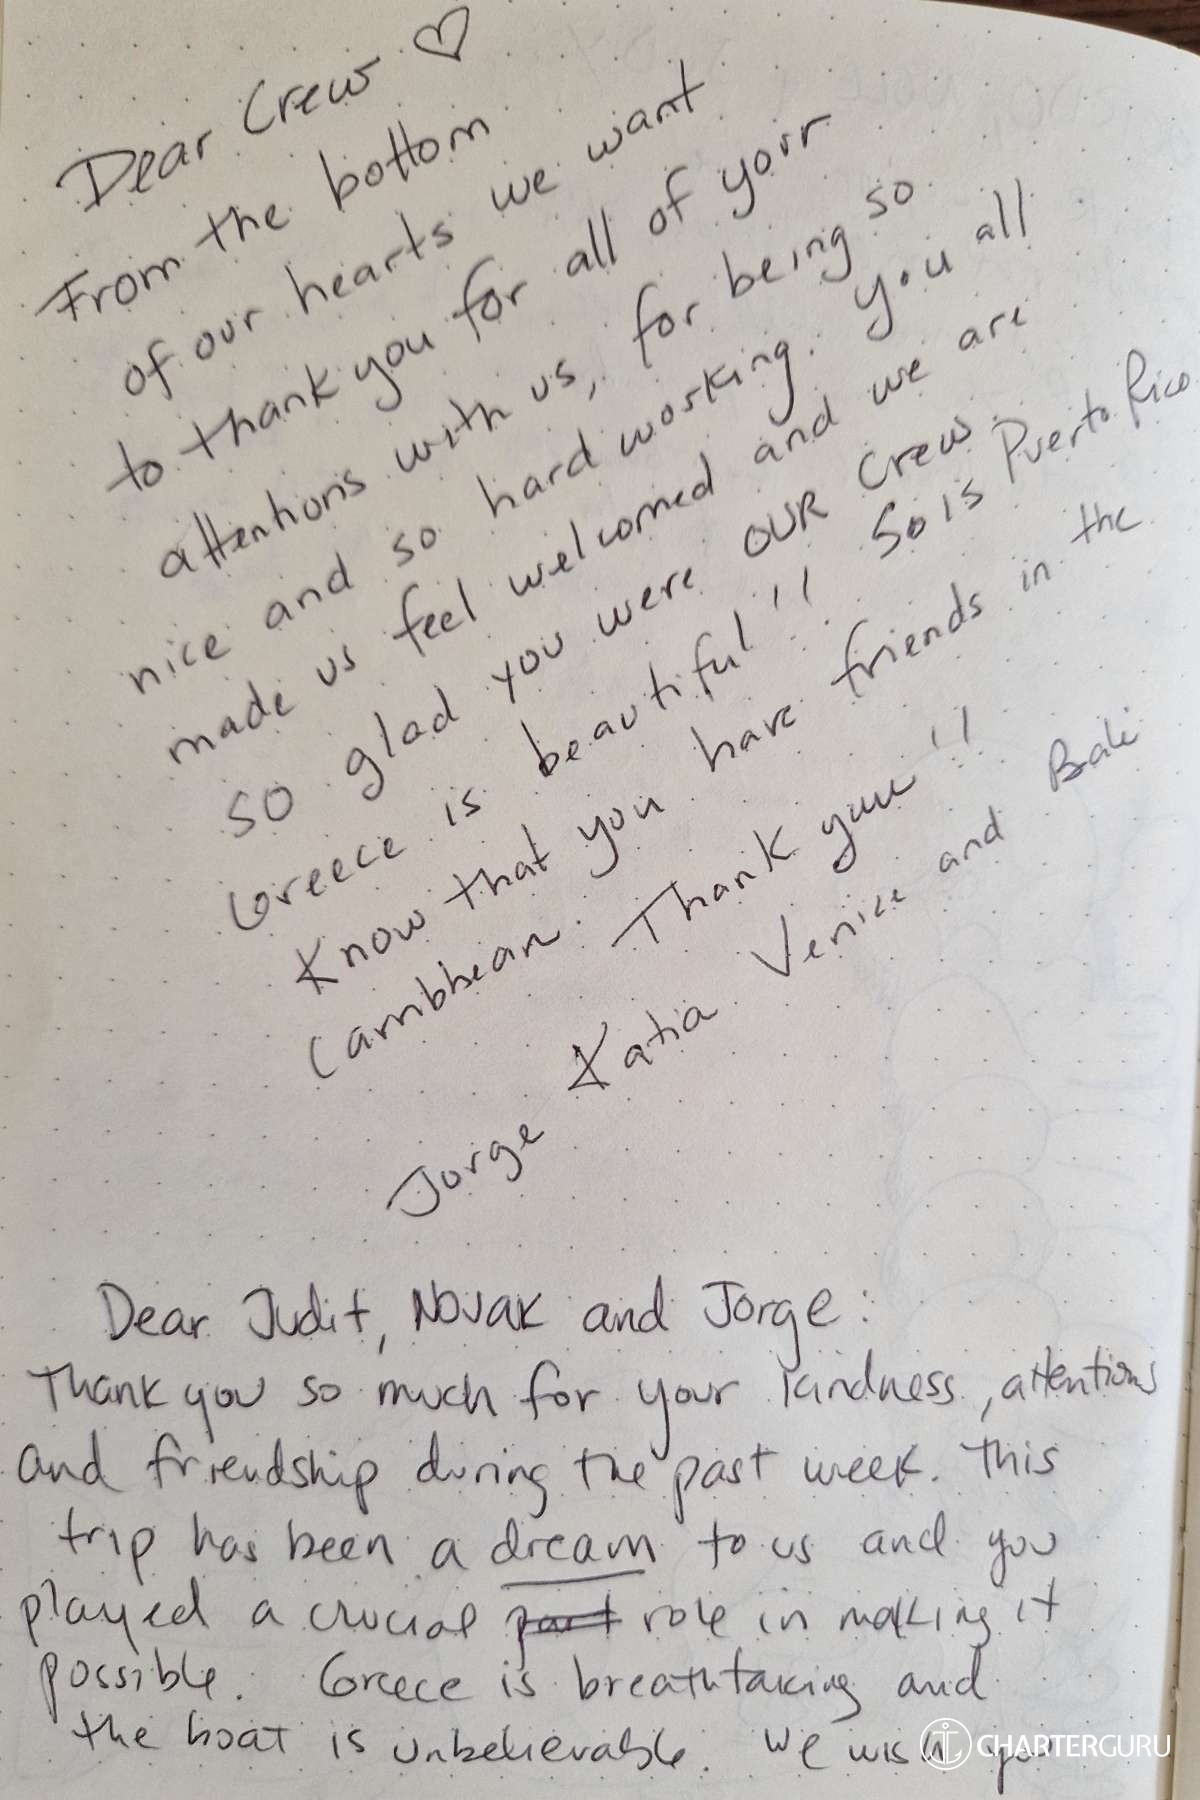 Dear Crew ♡
From the bottom
of our hearts we want
to thank you for all of your
attentions with us, for being so
nice and so hard working. you all
made us feel welcomed and we are
so glad you were OUR crew.
Greece is beautiful!! So is Puerto Rico
Know that you have friends in the
Carribbean. Thank yuu!!
Jorge Katia Venice and Bali
Dear Judit, Novak and Jorge:
Thank you so much for your kindness, attentions
and friendship during the past week. This
trip has been a dream to us and you
played a crucial part role in making it
possible. Greece is breathtaking and
the boat is unbelievable. We wish you
CHARTERGURU